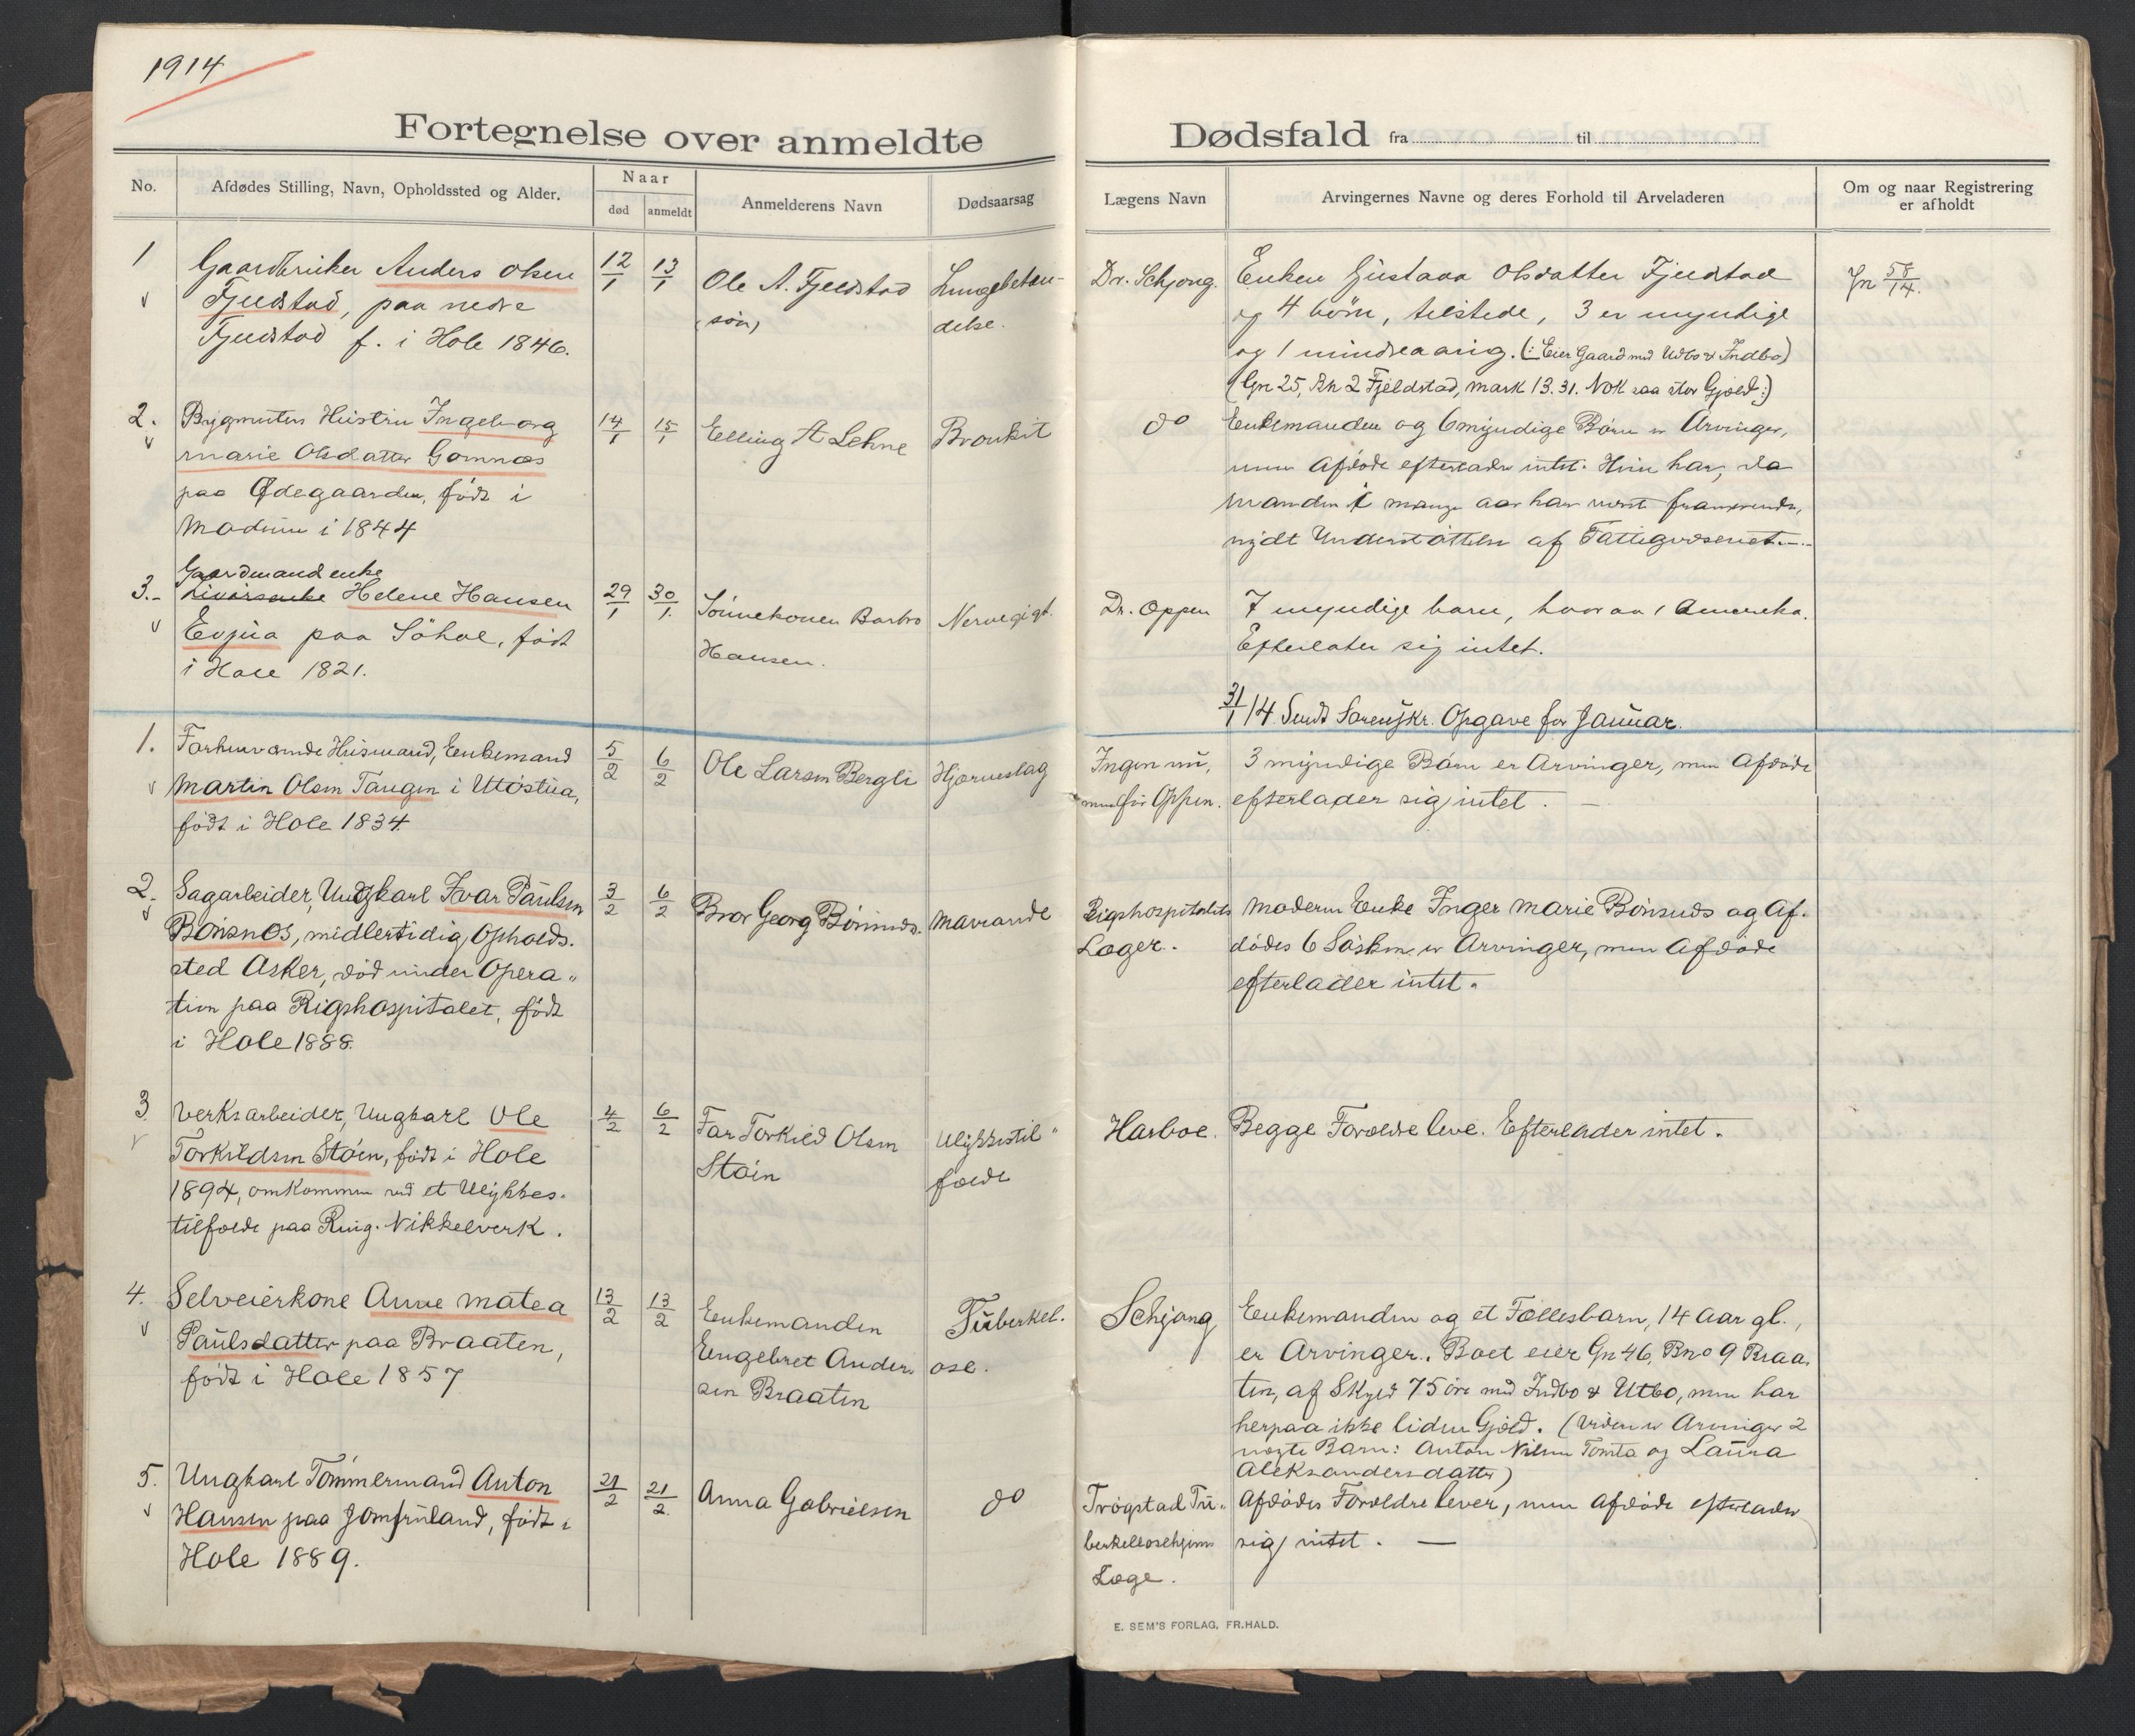 1914
Fortegnelse over anmeldte
Dødsfald fra til
No.
Afdødes Stilling, Navn, Opholdssted og Alder.
Naar
død
anmeldt
Anmelderens Navn
Dødsaarsag
Lægens Navn
Arvingernes Navne og deres Forhold til Arveladeren
Om og naar Registrering
er afholdt
1
Gaardbruker Anders Olsen
Fjeldstad, paa nedre
Fjeldstad f. i Hole 1846.
12/1
13/1
Ole A. Fjeldstad
(søn)
Lungebetæn-
delse.
Dr. Schjong.
Enken Gustava Olsdatter Fjeldstad
og 4 børn, tilstede, 3 er myndige
og 1 mindreaarig. (: Eier Gaard med Udbo & Indbo)
(Gn 25, Bn 2 Fjeldstad, mark 13.31. Nok saa stor Gjæld :)
Jn 58/14.
2.
Bygmuters Hustru Ingeborg
Marie Olsdatter Gomnæs
paa Ødegaarden, født i
Modum i 1844
14/1
15/1
Elling A Lehne
Bronkit
do
Enkemanden og 6 myndige Børn er Arvinger,
men Afdøde efterlader intet. Hun har, da
Manden i mange aar har været fraværende,
nydt Understøttelse af Fattigvæsenet.
3.-
Gaardmandenke
Helene Hansen
Evjua paa Søhol, født
i Hole 1821.
29/1
30/1.
Sønnekonen Barbro
Hansen.
Nervegigt.
Dr. Oppen
7 myndige barn, hvoraf 1 Amerika.
Efterlater sig intet.
31/1 14 Sendt Sorenskr. Opgave for Januar.
1.
Forhenværende Husmand, Enkemand
Martin Olsen Tangen i Utøstua,
født i Hole 1834
5/2
6/2
Ole Larsen Bergli
Hjerneslag
Ingen nu,
men før Oppen.
3 myndige Børn er Arvinger, men Afdøde
efterlader sig intet. —
2.
Sagarbeider, Ungkarl Ivar Paulsen
Bønsnes, midlertidig Opholds-
sted Asker, død under Opera-
tion paa Rigshospitalet, født
i Hole 1888.
3/2
6/2
Bror Georg Bønsnes.
Mavaande
Rigshospitalets
Læger.
Moderen Enke Inger Marie Bønsnes og Af-
dødes 6 Søsken er Arvinger, men Afdøde
efterlader intet.
3
Verksarbeider, Ungkarl Ole
Torkildsen Støen, født i Hole
1894, omkommen ved et Ulykkes-
tilfælde paa Ring. Nikkelverk.
4/2
6/2
Far Torkild Olsen
Støen
Ulykkestil-
fælde
Harboe.
Begge Forældre leve. Efterlader intet.
4.
Selveierkone Anne Matea
Paulsdatter paa Braaten,
født i Hole 1857
13/2
13/2
Enkemanden
Engebret Ander-
sen Braaten
Tuberkel-
ose.
Schjong
Enkemanden og et Fællesbarn, 14 Aar gl.,
er Arvinger. Boet eier Gn 46, Bno 9 Braa-
ten, af Skyld 75 øre med Indbo & Utbo, men har
herpaa ikke liden Gjæld. (Viden er Arvinger 2
uægte Barn: Anton Nilsen Tomta og Laura
Aleksandersdatter)
5.
Ungkarl Tømmermand Anton
Hansen paa Jomfruland, født i
Hole 1889.
21/2
21/2.
Anna Gabrielsen
do
Trøgstad Tu-
berkelosehjems
Læge.
Afdødes Forældre lever, men Afdøde efterlader
sig intet. —
E. SEM'S FORLAG, FR.HALD.